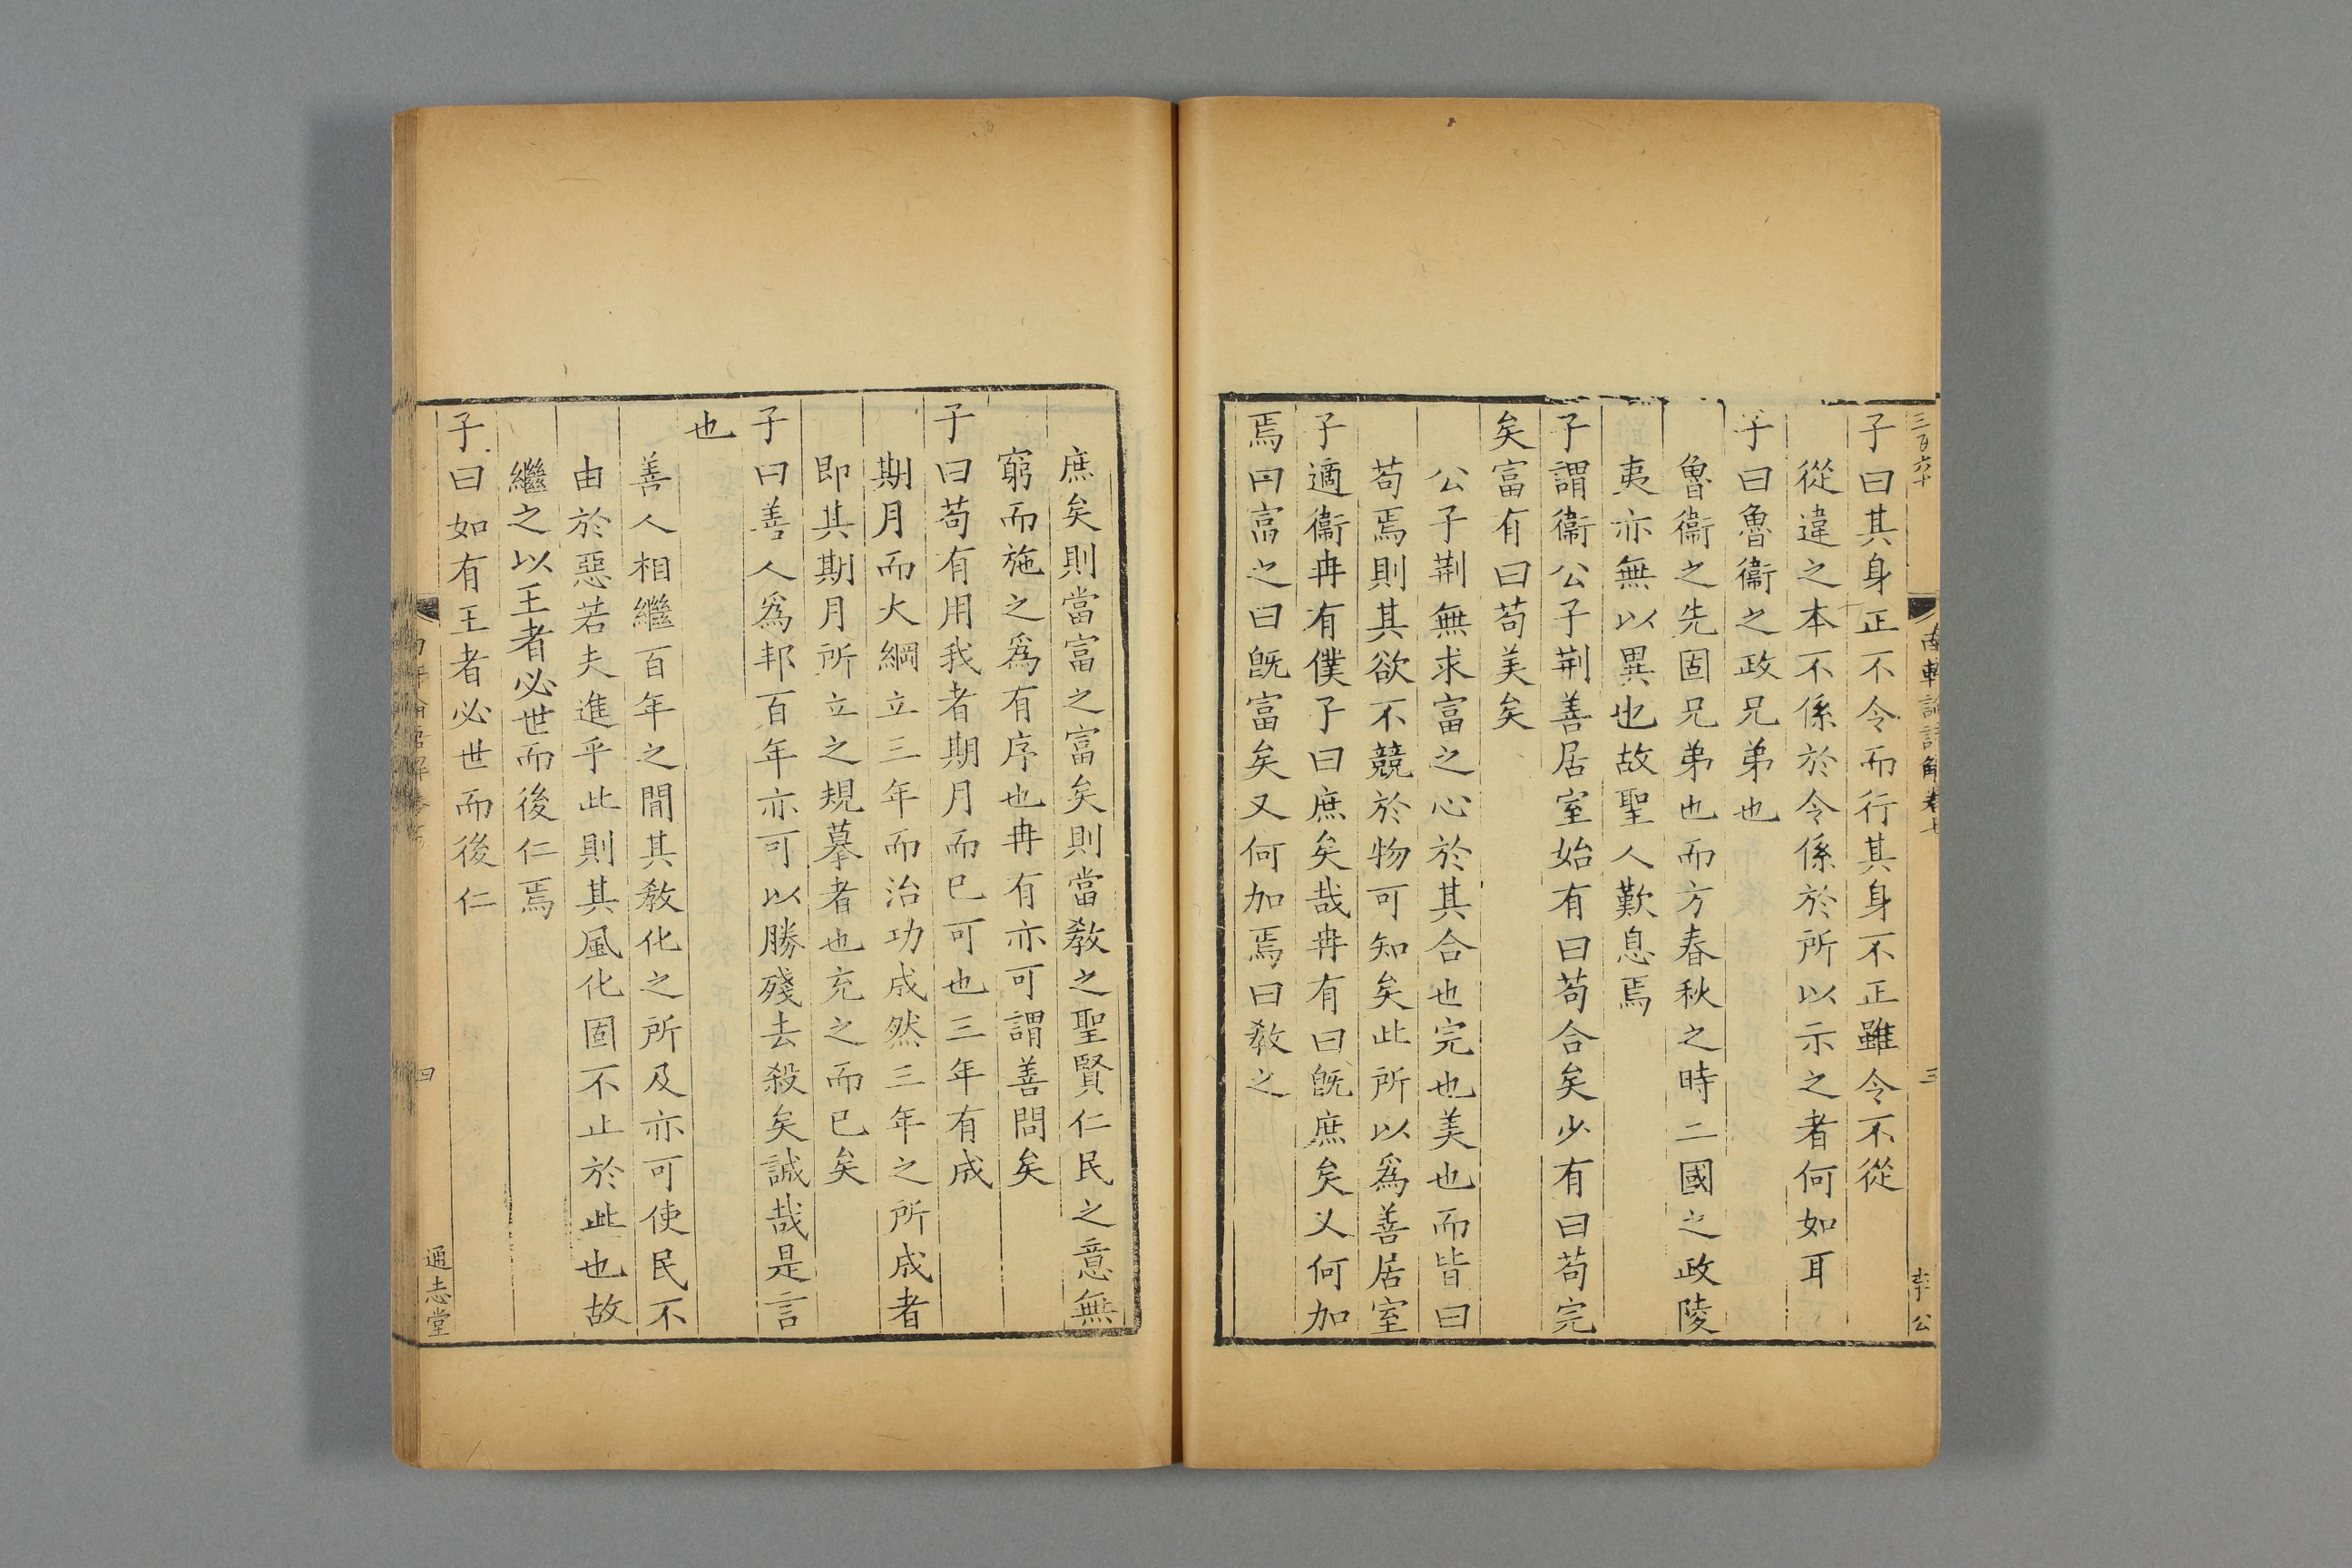 三百六十
南軒論語解卷七
三
李公
子曰其身正不令而行其身不正雖令不從
從違之本不係於令係於所以示之者何如耳
子曰魯衞之政兄弟也
魯衞之先固兄弟也而方春秋之時二國之政陵
夷亦無以異也故聖人歎息焉
子謂衞公子荆善居室始有曰苟合矣少有曰苟完
矣富有曰苟美矣
公子荆無求富之心於其合也完也美也而皆曰
苟焉則其欲不競於物可知矣此所以爲善居室
子適衞冉有僕子曰庶矣哉冉有曰旣庶矣又何加
焉曰富之曰旣富矣又何加焉曰敎之
庶矣則當富之富矣則當敎之聖賢仁民之意無
窮而施之爲有序也冉有亦可謂善問矣
子曰苟有用我者期月而已可也三年有成
期月而大綱立三年而治功成然三年之所成者
即其期月所立之規摹者也充之而已矣
子曰善人爲邦百年亦可以勝殘去殺矣誠哉是言
也
善人相繼百年之閒其敎化之所及亦可使民不
由於惡若夫進乎此則其風化固不止於此也故
繼之以王者必世而後仁焉
子曰如有王者必世而後仁
四
通志堂